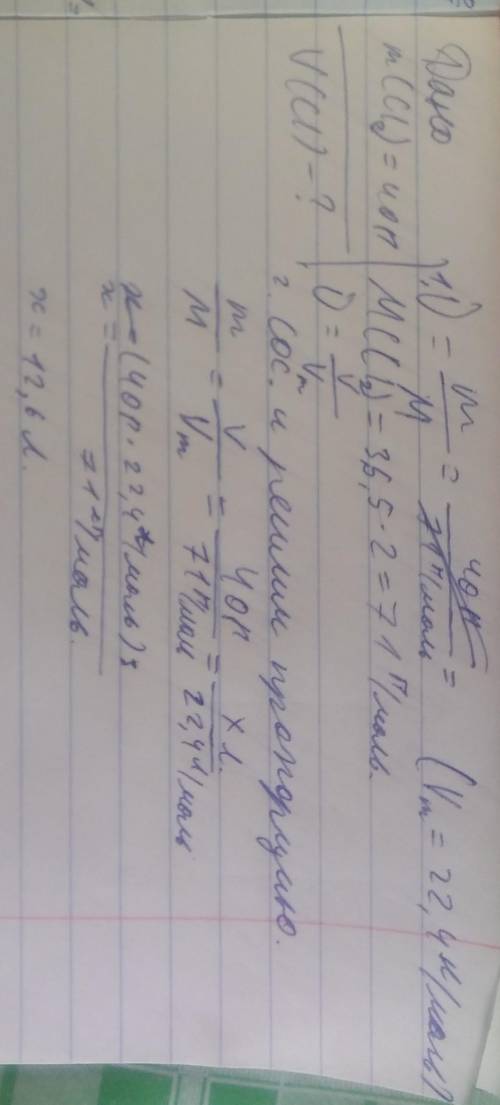 Дано
m(Cl₂) = 40г
V(Cl) - ?
1) ν = m/M = 40г/71г/моль = (Vm = 22,4л/моль)
M(Cl₂) = 35,5·2 = 71г/моль.
ν = V/Vm
2. Сос. и решим пропорцию.
m/M = V/Vm = 40г/71г/моль = x л./22,4л/моль
x = (40г·22,4л/моль) :
x = 71г/моль.
x = 12,6 л.